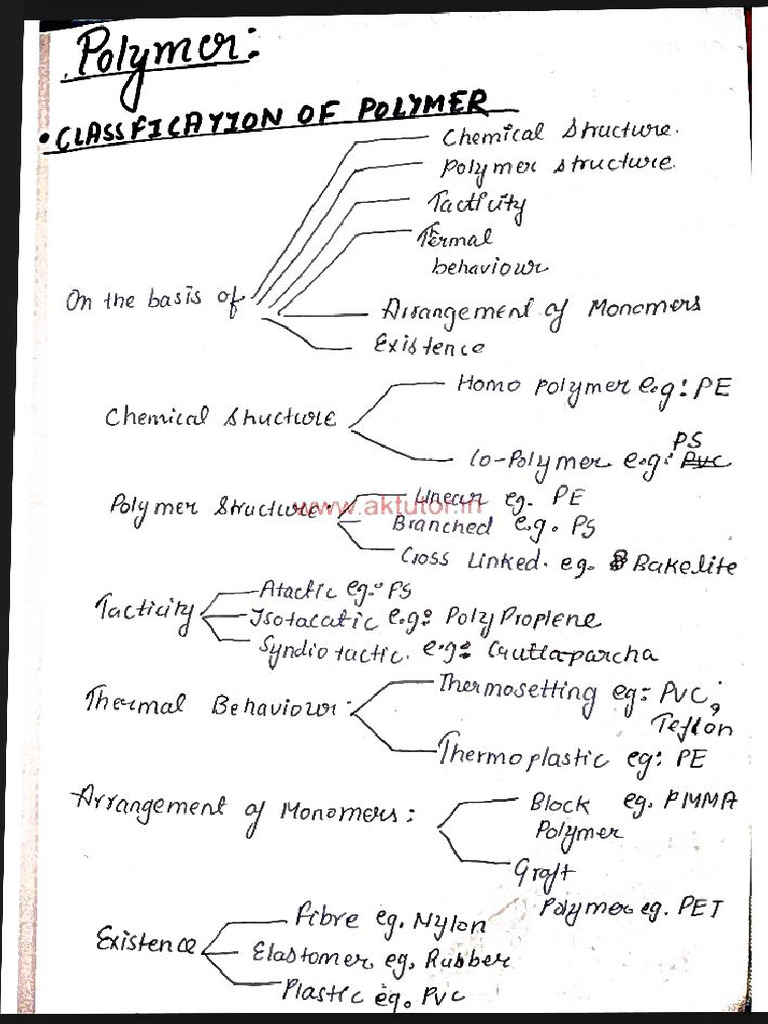 Polymer:
• CLASSFICATION OF POLYMER
Chemical Structure.
Polymer structure.
Tacticity
Termal
behaviour
On the basis of
Arrangement of Monomers
Existence
Homo polymer e.g: PE
Chemical Structure
PS
Co-Polymer e.g: PVC
Linear eg. PE
Polymer Structure:
www.aktutor.in
Branched e.g. PS
Cross Linked. eg. Bakelite
Atactic eg:- PS
Tacticity
Isotacatic e.g: PolyProplene
Syndiotactic. e.g: Guttaparcha
Thermosetting eg: PVC,
Thermal Behaviour:
Teflon
Thermoplastic eg: PE
Arrangement of Monomers:
Block eg. PMMA
Polymer
Graft
Polymer eg. PET
Fibre eg. Nylon
Existence
Elastomer eg. Rubber
Plastic eg. PVC